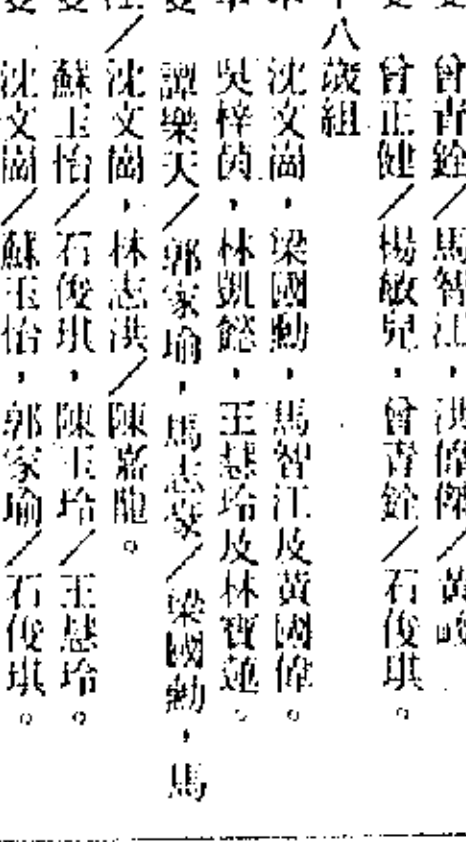 曾青銓／馬智江，洪偉傑／黃
曾正健／楊敏兒，曾青銓／石俊琪。
八歲組
沈文崗，梁國勳，馬智江及黃國偉。
吳梓茵，林凱懿，王慧玲及林寶蓮。
譚樂天／郭家瑜，馬志豪／梁國勳，馬
／沈文崗，林志洪／陳嘉龍。
蘇玉怡／石俊琪，陳玉玲／王慧玲。
沈文崗／蘇玉怡，郭家瑜／石俊琪。